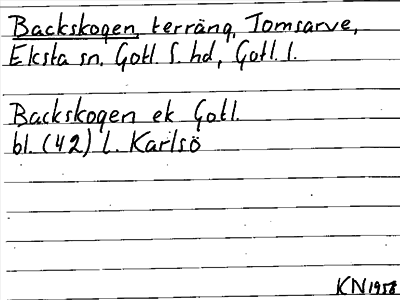 Backskogen, terräng, Tomsarve,
Eksta sn, Gotl. S. hd, Gotl. l.
Backskogen ek Gotl.
bl. (42) L. Karlsö
KN 1958